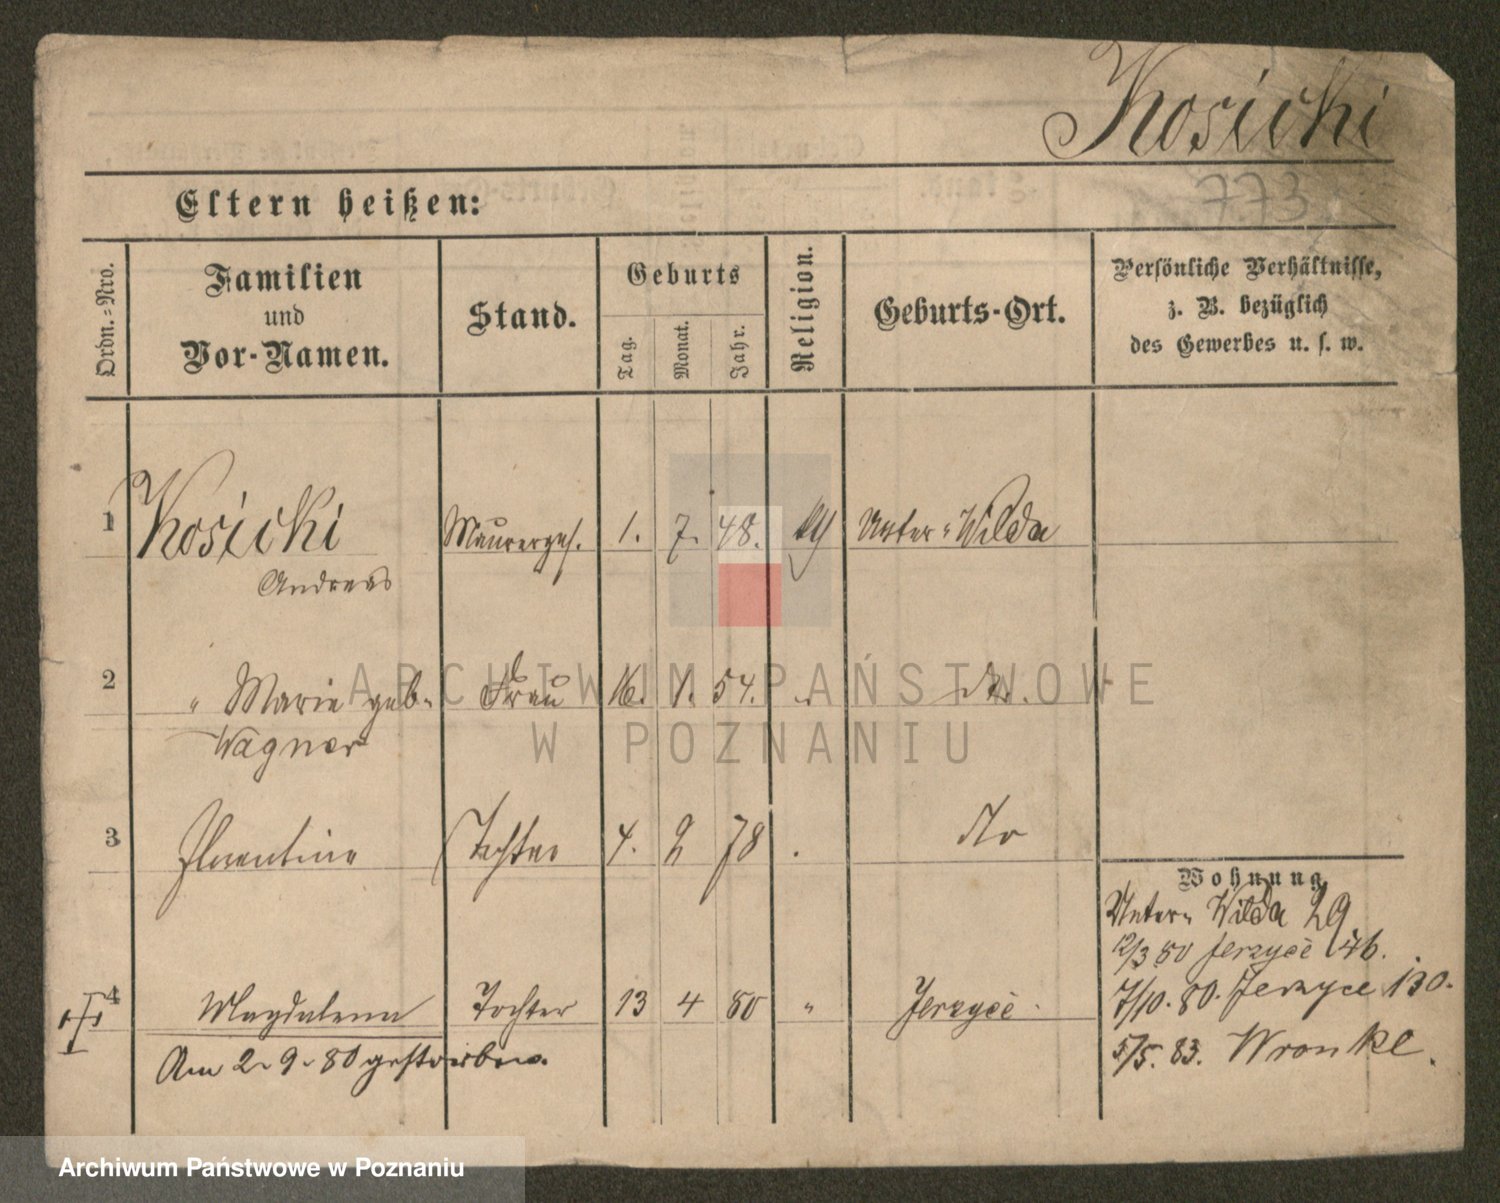 Kosicki
773
Eltern heißen:
Ordn.-Nro.
Familien und Vor-Namen.
Stand.
Geburts
Tag. Monat. Jahr.
Religion.
Geburts-Ort.
Persönliche Verhältnisse,
z. B. bezüglich
des Gewerbes u. s. w.
1 Kosicki Maurerges. 1. 7. 48. Unter-Wilda
Andreas
2 " Marie geb. Frau 16. 1. 54. " dto.
Wagner
3 Florentine Tochter 4. 2 78 . dto
Wohnung
Unter-Wilda 29
12/3 80 Jerzyce 46.
4 Magdalena Tochter 13 4 80 " Jerzyce
7/10. 80. Jerzyce 130.
Am 2. 9. 80 gestorben.
5/5. 83. Wronke.
ARCHIWUM PAŃSTWOWE
W POZNANIU
Archiwum Państwowe w Poznaniu